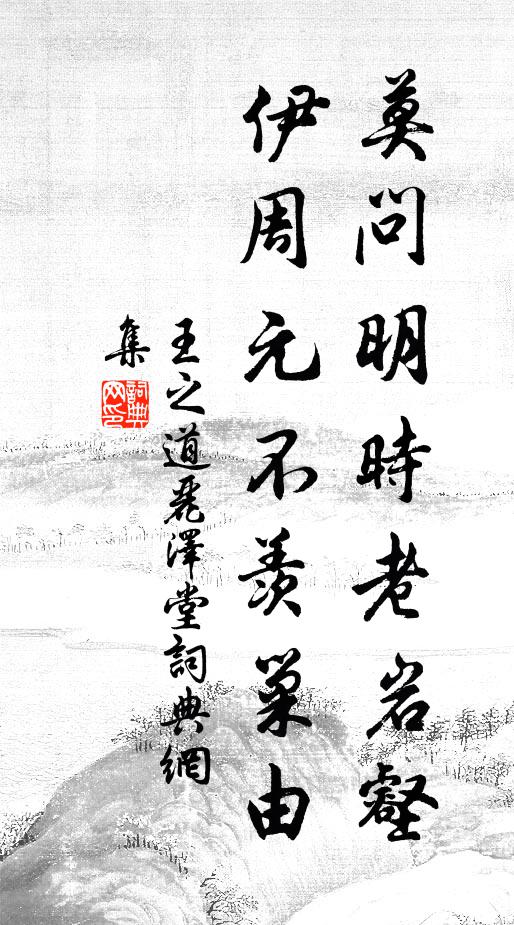 莫問明時老岩壑
伊周元不羨巢由
王之道麗澤堂詞典網
集
詞典
网印